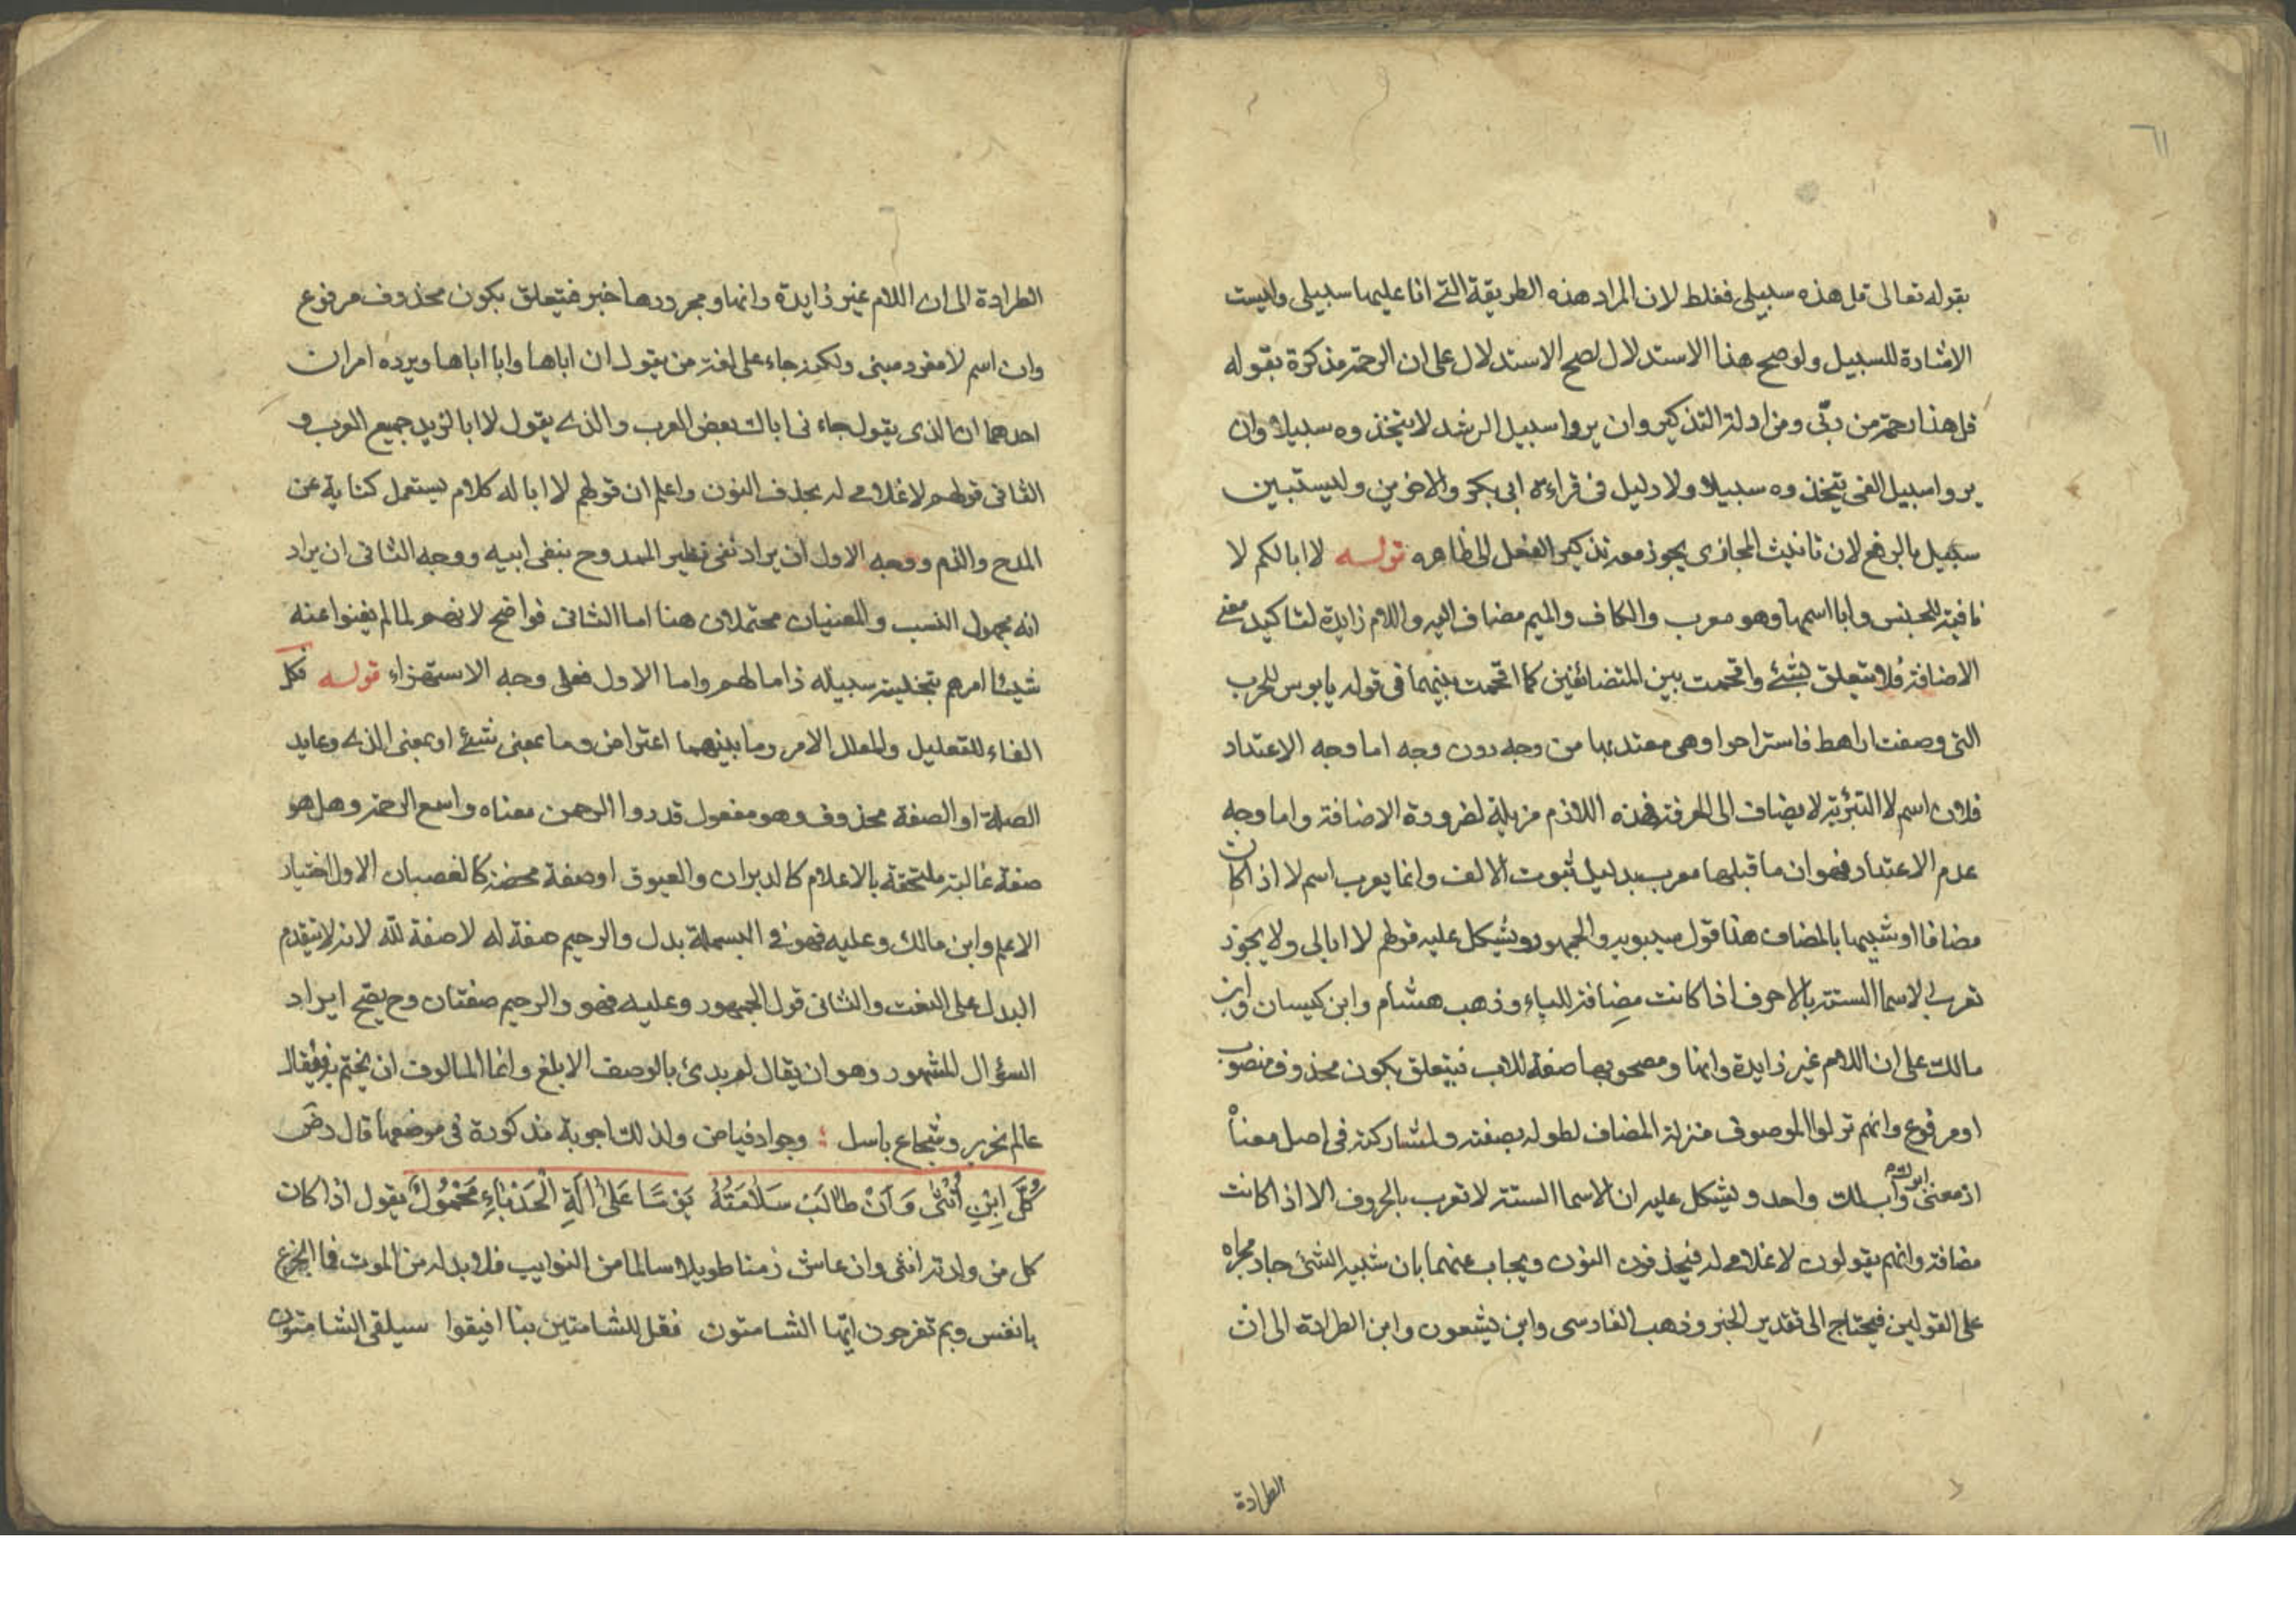 ٦١
بقوله تعالى قل هذه سبيلى فغلط لان المراد هذه الطريقة التى انا عليها سبيلى وليست
الاشارة للسبيل ولو صح هذا الاستدلال لصح الاستدلال على ان الرحمة مذكرة بقوله
قل هذا رحمة من ربّى ومن ادلة التذكير وان يروا سبيل الرشد لا يتخذوه سبيلا وان
يروا سبيل الغى يتخذوه سبيلا ولا دليل فى قراءة ابى بكر والاخوين وليستبين
سبيل بالرفع لان تانيث المجازى يجوز معه تذكير الفعل الى ظاهره قولـــه لا ابا لكم لا
نافية للجنس وابا اسمها وهو معرب والكاف والميم مضاف اليه واللام زايدة لتاكيد معنى
الاضافة فلا تتعلق بشئ واقحمت بين المتضائفين كما اقحمت بينهما فى قوله يا بوس للحرب
التى وضعت اراهط فاستراحوا وهى معتد بها من وجه دون وجه اما وجه الاعتداد
فلان اسم لا التبرئة لا يضاف الى المعرفة فهذه اللام مزيلة لضرورة الاضافة واما وجه
عدم الاعتداد فهو ان ما قبلها معرب بدليل ثبوت الالف وانما يعرب اسم لا اذا كان
مضافا او شبيها بالمضاف هذا قول سيبويه والجمهور ويشكل عليه قولهم لا ابا لى ولا يجوز
تعرب الاسما الستة بالاحرف اذا كانت مضافة للياء وذهب هشام وابن كيسان وابن
مالك على ان اللام غير زايدة وانها ومصحوبها صفة للاب فيتعلق بكون محذوف منصوب
او مرفوع وانهم نزلوا الموصوف منزلة المضاف لطوله بصفته ولمشاركته فى اصل معناه
اذ معنى ابوك واب لك واحد ويشكل عليه ان الاسما الستة لا تعرب بالحروف الا اذا كانت
مضافة وانهم يقولون لا غلامى له فيحذفون النون ويجاب عنهما بان شبيه الشئ جار مجراه
على القولين فيحتاج الى تقدير الخبر وذهب الفارسى وابن يشعون وابن الطراوة الى ان
الطراوة
الطراوة الى ان اللام غير زايدة وانها ومجرورها خبر فيتعلق بكون محذوف مرفوع
وان اسم لا مفرد مبنى ولكنه جاء على لغة من يقول ان اباها وابا اباها ويرده امران
احدهما ان الذى يقول جاء نى اباك بعض العرب والذى يقول لا ابا لزيد جميع العرب و
الثانى قولهم لا غلامى له بحذف النون واعلم ان قولهم لا ابا له كلام يستعمل كناية عن
المدح والذم ووجه الاول ان يراد نفى نظير الممدوح بنفى ابيه ووجه الثانى ان يراد
انه مجهول النسب والمعنيان محتملان هنا اما الثانى فواضح لانهم لما لم يغنوا عنه
شيئا امرهم بتخلية سبيله ذاما لهم واما الاول فعلى وجه الاستهزاء قولـــه فكل
الفاء للتعليل والمعلل الامر وما بينهما اعتراض وما بمعنى شئ او بمعنى الذى وعايد
الصلة او الصفة محذوف وهو مفعول قدروا الرحمن معناه واسع الرحمة وهل هو
صفة غالبة ملتحقة بالاعلام كالدبران والعيوق او صفة محضة كالغضبان الاول اختيار
الاعلم وابن مالك وعليه فهو فى البسملة بدل والرحيم صفة له لا صفة لله لانه لا يتقدم
البدل على النعت والثانى قول الجمهور وعليه فهو والرحيم صفتان وح يصح ايراد
السؤال المشهور وهو ان يقال لم بدئ بالوصف الابلغ وانما المالوف ان يختم به فيقال
عالم نحرير وشجاع باسل ؛ وجواد فياض ولذلك اجوبة مذكورة فى موضعها قال رضَ
كُلُّ ابْنِ أُنْثَى وَاِنْ طَالَتْ سَلَامَتُهُ يَوْمًا عَلَى اٰلَةٍ الْحَدْبَاءِ مَحْمُولُ يقول اذا كان
كل من ولدته انثى وان عاش زمنا طويلا سالما من النوايب فلا بد له من الموت فما الجزع
يا نفس وبم تفرحون ايها الشامتون فقل للشامتين بنا افيقوا سيلقى الشامتون